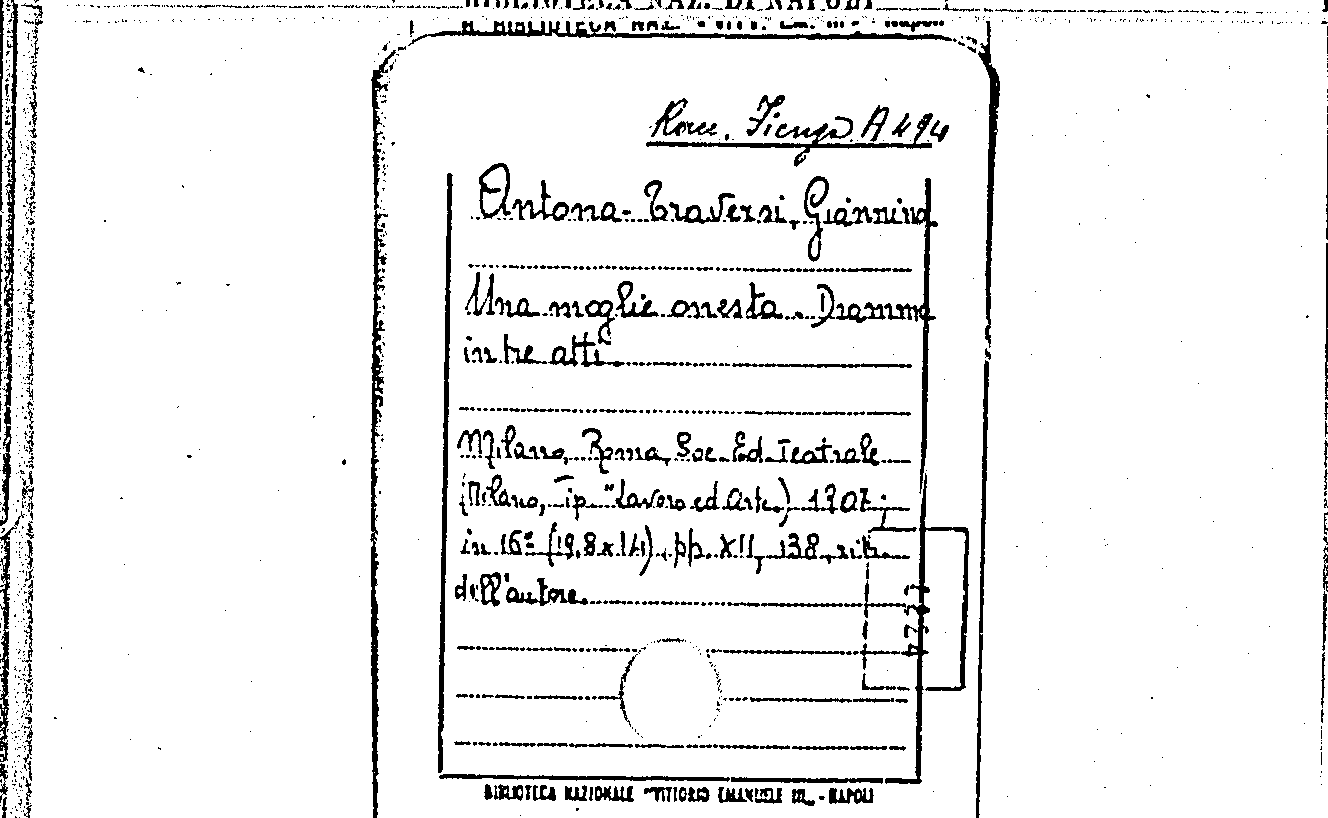 BIBLIOTECA NAZ. DI NAPOLI
R. BIBLIOTECA NAZ. "VITT. EM. III" - Napoli
Racc. Fienga A 494
Antona-Traversi, Giannino
Una moglie onesta. Dramma
in tre atti.
Milano, Roma, Soc. Ed. Teatrale
(Milano, Tip. "Lavoro ed Arte.) 1907;
in 16º (19,8x14), pp. XII, 138, ritr.
dell'autore.
BIBLIOTECA NAZIONALE "VITTORIO EMANUELE III" - NAPOLI